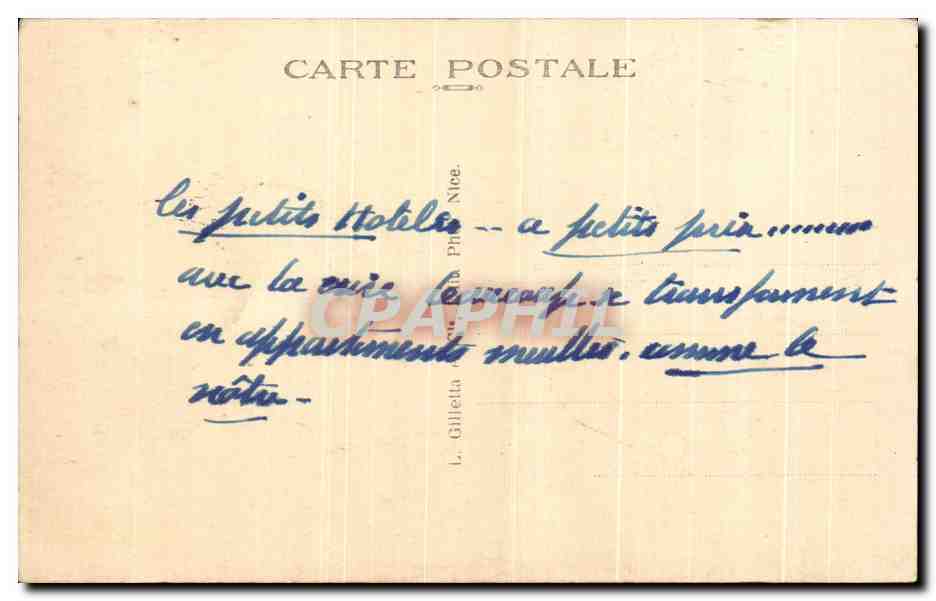 CARTE POSTALE
les petits Hotels -- a petits prix.........
avec la crise beaucoup se transforment
en appartements meublés. comme le
nôtre -
L. Gilletta Phot. Nice.
CPAPHIL